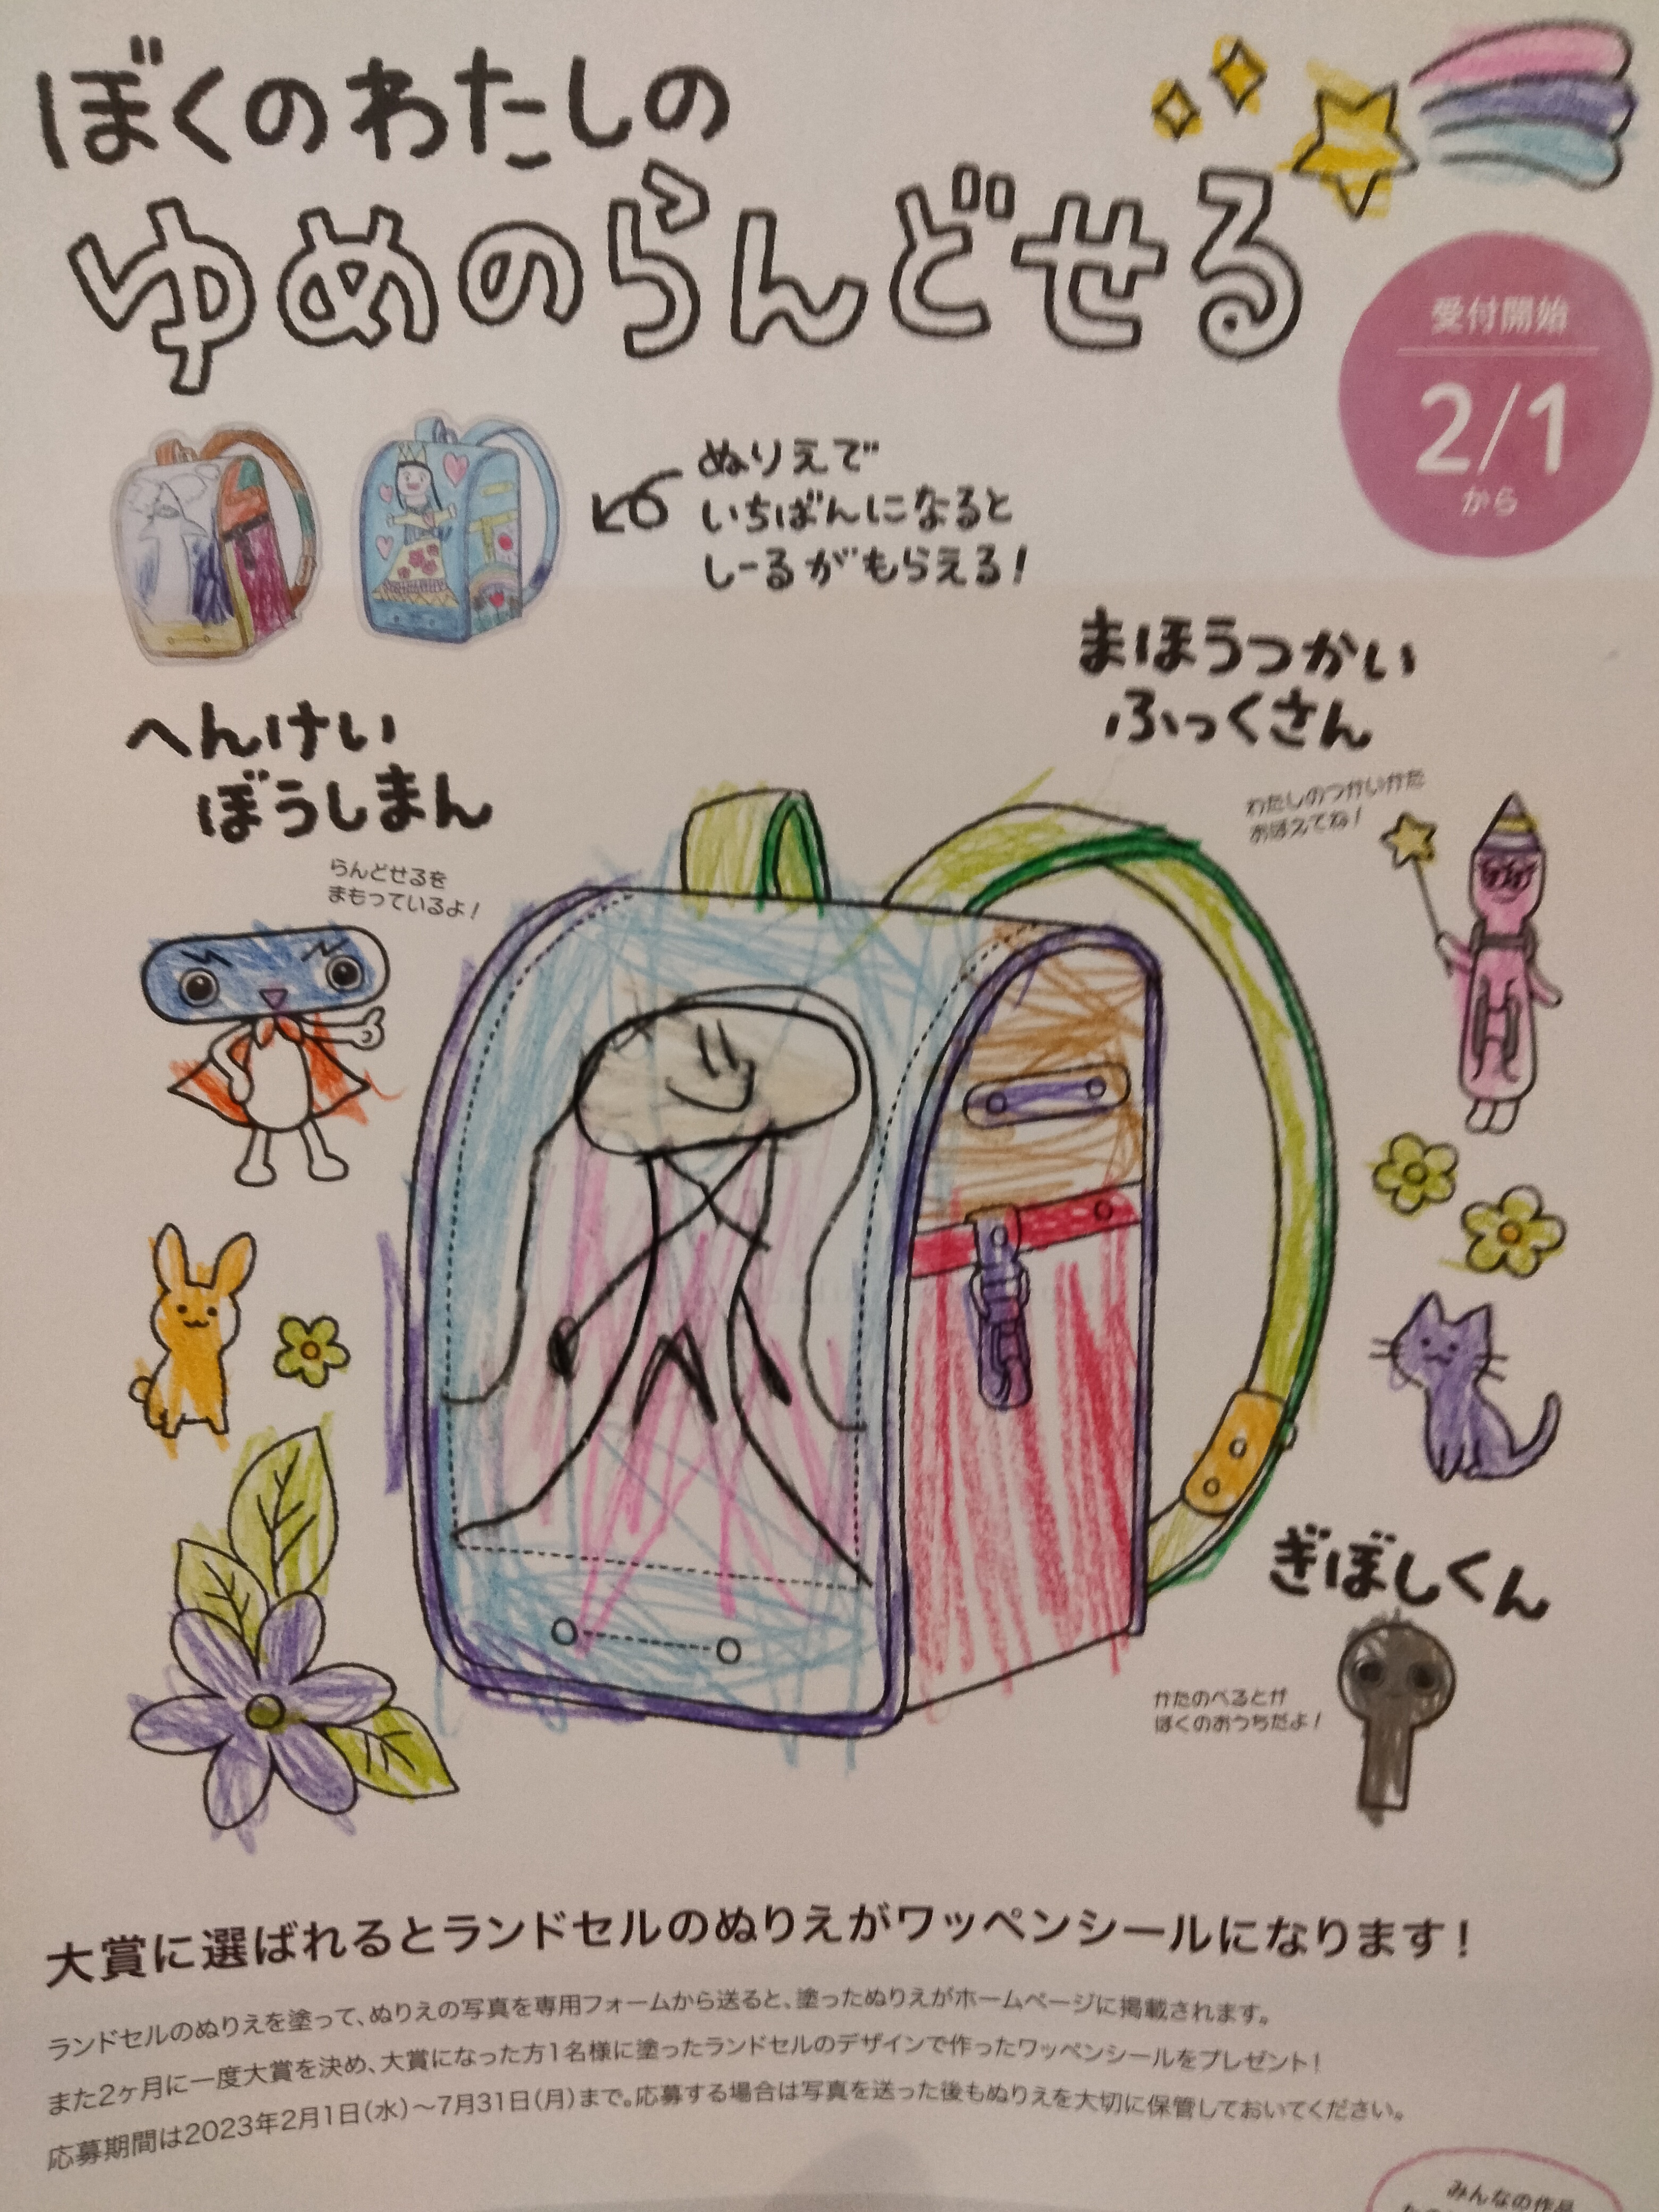 ぼくのわたしの
ゆめのらんどせる
受付開始
2/1
から
ぬりえで
いちばんになると
しーるがもらえる!
まほうつかい
ふっくさん
わたしのつかいかた
おぼえてね!
へんけい
ぼうしまん
らんどせるを
まもっているよ!
ぎぼしくん
かたのべるとが
ぼくのおうちだよ!
大賞に選ばれるとランドセルのぬりえがワッペンシールになります!
ランドセルのぬりえを塗って、ぬりえの写真を専用フォームから送ると、塗ったぬりえがホームページに掲載されます。
また2ヶ月に一度大賞を決め、大賞になった方1名様に塗ったランドセルのデザインで作ったワッペンシールをプレゼント!
応募期間は2023年2月1日(水)〜7月31日(月)まで。応募する場合は写真を送った後もぬりえを大切に保管しておいてください。
みんなの作品